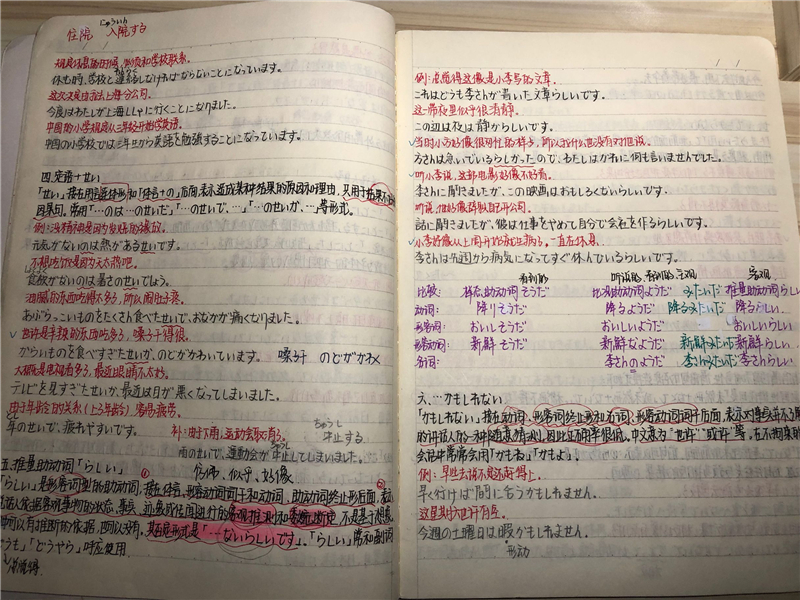 にゅういん
住院 入院する
休む時、学校と連絡しなければならないことになっています。
这次决定由我去上海分公司。
今度はわたしが上海ししゃに行くことになりました。
中国的小学规定从三年级开始学英语。
中国の小学校では三年生から英語を勉強することになっています。
四.定语+せい
「せい」接在用言连体形和「体言+の」后面,表示造成某种结果的原因和理由,只用于
因果句。常用「…のは…のせいだ」「…のせいで、…」「…のせいか、…」等形式。
元気がないのは熱があるせいです。
不想吃饭是因为天太热吧。
食欲がないのは暑さのせいでしょう。
油腻的东西吃得太多,所以闹肚子
あぶらっこいものをたくさん食べたせいで、おなかが痛くなりました。
也许是辛辣的东西吃多了,嗓子干得很。
からいものを食べすぎたせいか、のどがかわいています。 嗓子干 のどがかわく
大概是电视看多了,最近眼睛不太好。
テレビを見すぎたせいか、最近は目が悪くなってしまいました。
由于年龄的关系(上了年龄)容易疲劳。
年のせいで、疲れやすいです。
补:由于下雨,运动会取消了。
ちゅうし
中止する
雨のせいで、運動会が中止してしまいました。
五.推量助动词「らしい」 ① 仿佛、似乎、好像
「らしい」是形容词型的助动词,接在体言、形容动词词干和动词、助动词终止形后面,表示
客观推测和委婉断定
其否定形式是「…ないらしいです」、「らしい」常和副词
「どうも」「どうやら」呼应使用
例:我觉得这像是小李写的文章。
これはどうも李さんが書いた文章らしいです。
这一带夜里似乎很清静。
この辺は夜は静からしいです。
当时小方好像很着急的样子,所以我什么也没有对他说。
方さんは急いでいるらしかったので、わたしはかれに何も言いませんでした。
听小李说,这部电影好像不好看。
李さんに聞きましたが、この映画はおもしろくないらしいです。
听说,他好像辞职自己开公司。
話に聞きましたが、彼は仕事をやめて自分で会社を作るらしいです。
小李好像从上周开始就生病了,一直在休息。
李さんは先週から病気になってずっと休んでいるらしいです。
看到的 听说的、看到的、主观 客观
比较: 样态助动词そうだ 比况助动词ようだ みたいだ 推量助动词らしい
动词: 降りそうだ 降るようだ 降るみたいだ 降るらしい
形容词: おいしそうだ おいしいようだ おいしいらしい
形容动词: 新鮮そうだ 新鮮なようだ 新鮮みたいだ 新鮮らしい
名词: 李さんのようだ 李さんみたいだ 李さんらしい
六、…かもしれない
「かもしれない」接在动词、形容词终止形和名词、形容动词词干后面,表示对
中文意为"也许""或许"等。在不拘束的
会话中常常会用「かもね」「かもよ」!
例:早些去说不定还赶得上。
早く行けば間に合うかもしれません。
这星期六也许有空。
今週の土曜日は暇かもしれません。
形动